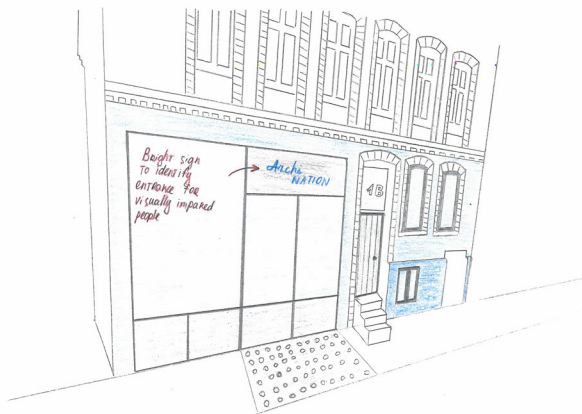 Bright sign
to identify
entrance for
visually impaired
people
Archi
NATION
4B